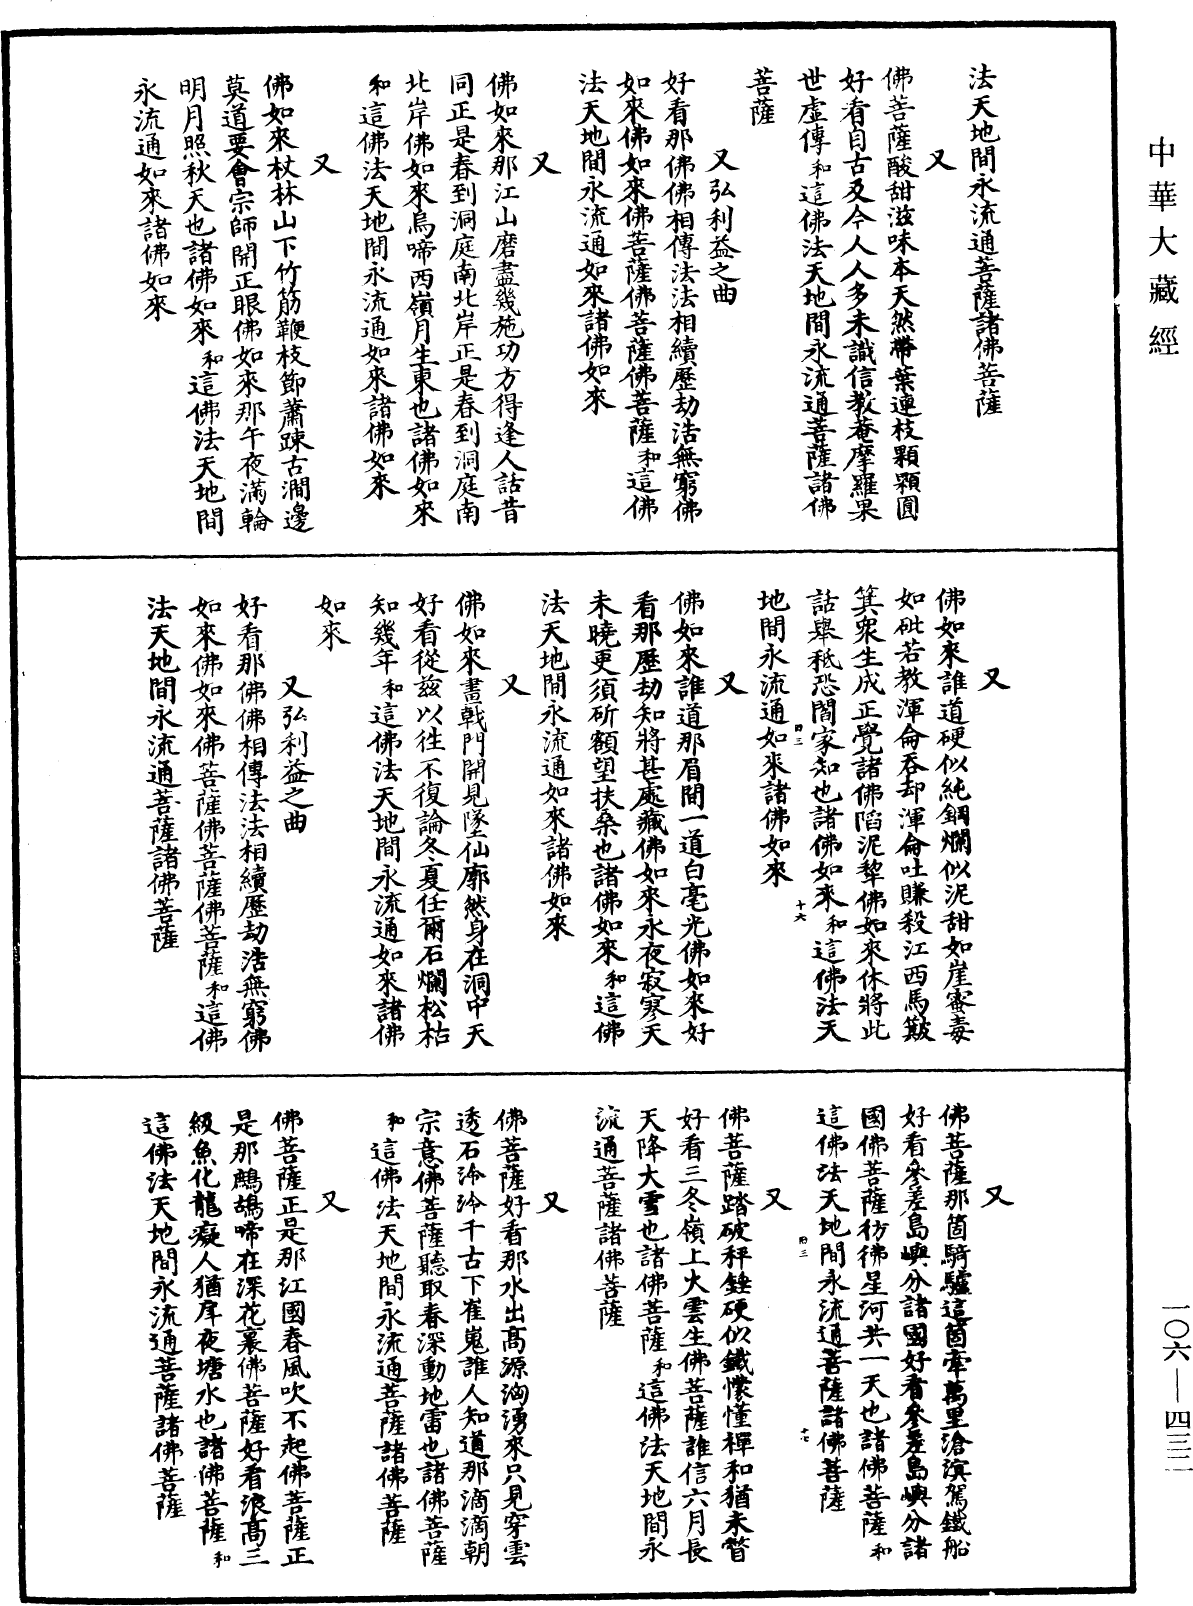 中華大藏經
法天地間永流通菩薩諸佛菩薩
又
佛菩薩酸甜滋味本天然帶葉連枝顆顆圓
好看自古及今人人多未識信教菴摩羅果
世虛傳和這佛法天地間永流通菩薩諸佛
菩薩
又弘利益之曲
好看那佛佛相傳法法相續歷劫浩無窮佛
如來佛如來佛菩薩佛菩薩佛菩薩和這佛
法天地間永流通如來諸佛如來
又
佛如來那江山磨盡幾施功方得逢人話昔
同正是春到洞庭南北岸正是春到洞庭南
北岸佛如來烏啼西嶺月生東也諸佛如來
和這佛法天地間永流通如來諸佛如來
又
佛如來杖林山下竹筋鞭枝節蕭踈古澗邊
莫道要會宗師開正眼佛如來那午夜滿輪
明月照秋天也諸佛如來和這佛法天地間
永流通如來諸佛如來
又
佛如來誰道硬似純鋼爛似泥甜如崖蜜毒
如砒若教渾侖吞却渾侖吐賺殺江西馬簸
箕衆生成正覺諸佛陷泥犂佛如來休將此
話舉秪恐閻家知也諸佛如來和這佛法天
地間永流通如來諸佛如來
附三
十六
又
佛如來誰道那眉間一道白毫光佛如來好
看那歷劫知將甚處藏佛如來永夜寂寥天
未曉更須斫額望扶桑也諸佛如來和這佛
法天地間永流通如來諸佛如來
又
佛如來畫戟門開見墜仙廓然身在洞中天
好看從兹以徃不復論冬夏任爾石爛松枯
知幾年和這佛法天地間永流通如來諸佛
如來
又弘利益之曲
好看那佛佛相傳法法相續歷劫浩無窮佛
如來佛如來佛菩薩佛菩薩佛菩薩和這佛
法天地間永流通菩薩諸佛菩薩
又
佛菩薩那箇騎驢這箇牽萬里滄溟駕鐵船
好看參差島嶼分諸國好看參差島嶼分諸
國佛菩薩彷彿星河共一天也諸佛菩薩和
這佛法天地間永流通菩薩諸佛菩薩
附三
十七
又
佛菩薩踏破秤錘硬似鐵懞懂禪和猶未瞥
好看三冬嶺上火雲生佛菩薩誰信六月長
天降大雪也諸佛菩薩和這佛法天地間永
流通菩薩諸佛菩薩
又
佛菩薩好看那水出高源洶湧來只見穿雲
透石泠泠千古下崔嵬誰人知道那滴滴朝
宗意佛菩薩聽取春深動地雷也諸佛菩薩
和這佛法天地間永流通菩薩諸佛菩薩
又
佛菩薩正是那江國春風吹不起佛菩薩正
是那鷓鴣啼在深花裏佛菩薩好看浪高三
級魚化龍癡人猶戽夜塘水也諸佛菩薩和
這佛法天地間永流通菩薩諸佛菩薩
一〇六—四三二